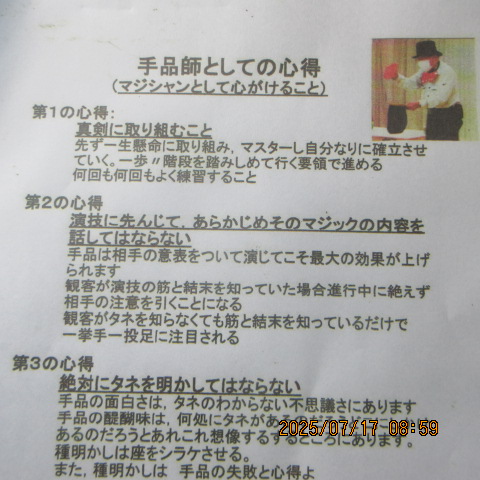 手品師としての心得
(マジシャンとして心がけること)
第1の心得:
真剣に取り組むこと
先ず一生懸命に取り組み，マスターし自分なりに確立させ
ていく。一歩〃階段を踏みしめて行く要領で進める
何回も何回もよく練習すること
第2の心得
演技に先んじて，あらかじめそのマジックの内容を
話してはならない
手品は相手の意表をついて演じてこそ最大の効果が上げ
られます
観客が演技の筋と結末を知っていた場合進行中に絶えず
相手の注意を引くことになる
観客がタネを知らなくても筋と結末を知っているだけで
一挙手一投足に注目される
第3の心得
絶対にタネを明かしてはならない
手品の面白さは，タネのわからない不思議さにあります
手品の醍醐味は，何処にタネがあるの
あるのだろうとあれこれ想像するするところにあります。
種明かしは座をシラケさせる。
また，種明かしは 手品の失敗と心得よ
2025/07/17 08:59